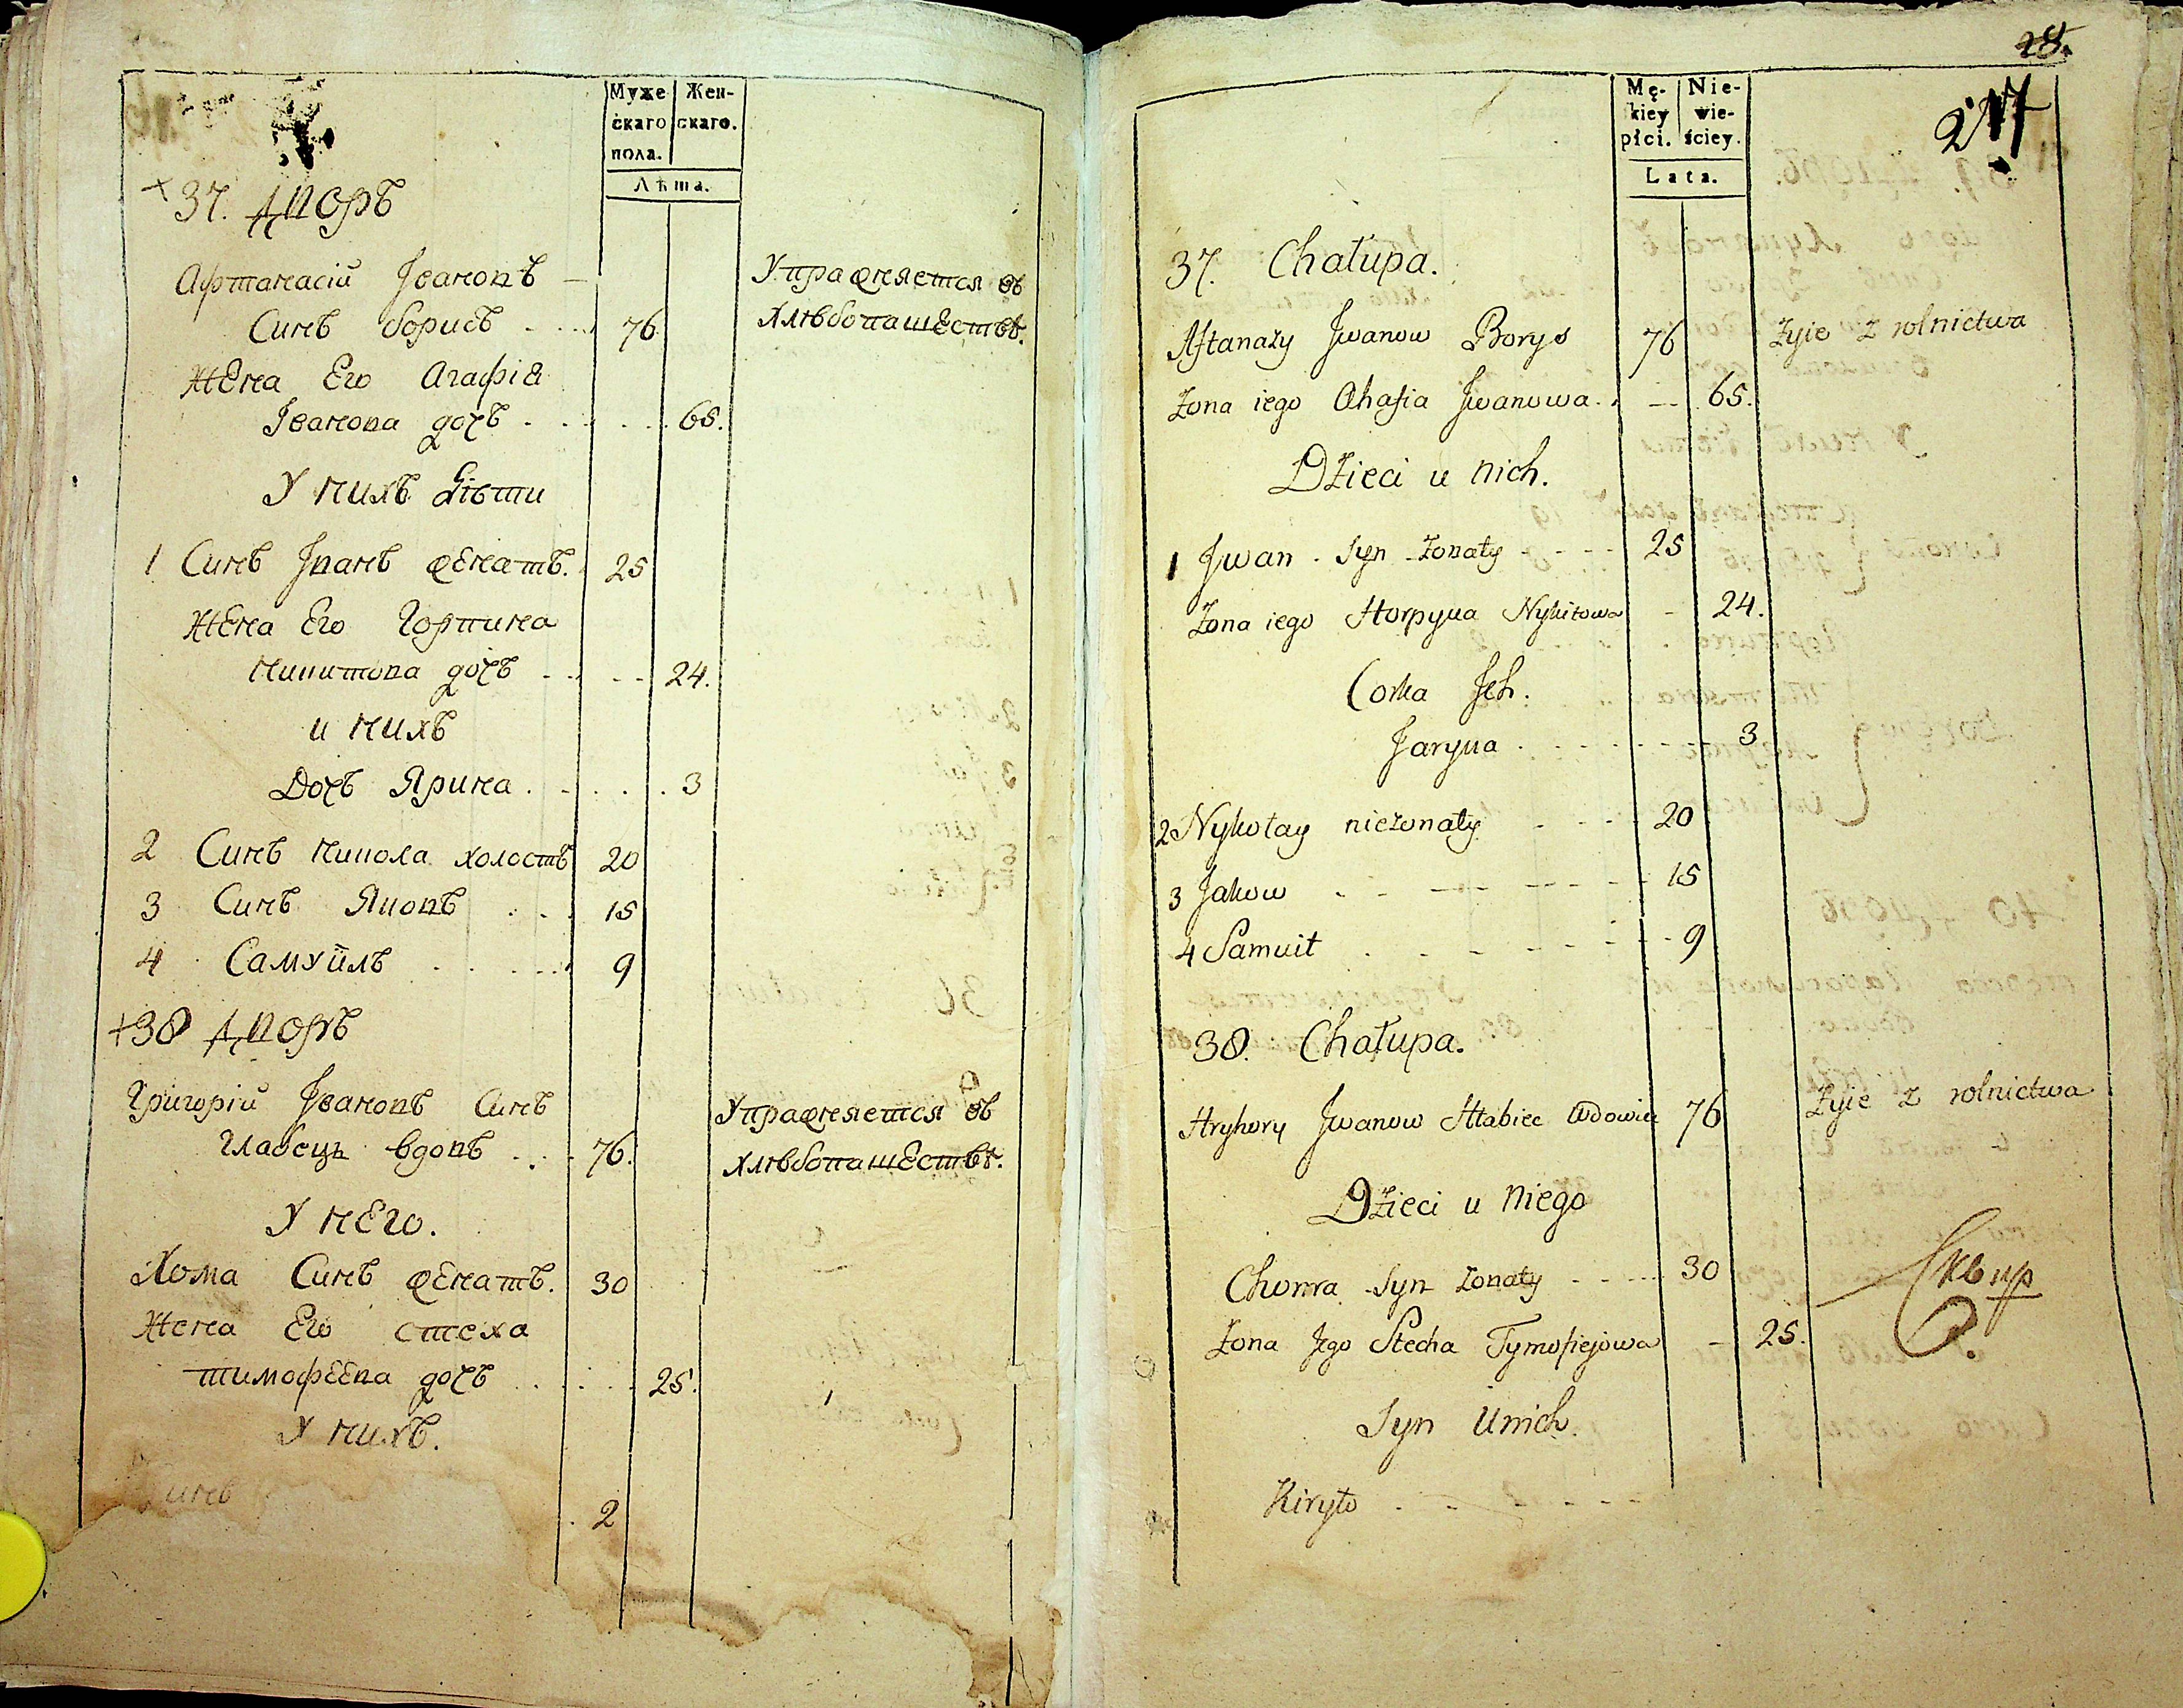 Муже
скаго
пола.
Жен-
скаго.
Лѣта.
37. Дворъ
Афтанасій Ивановъ
Синъ Борисъ 76
Управляется въ
Хлѣбопашествѣ.
Жена Его Агафія
Іванова дочъ 65.
У нихъ дѣти
1 Синъ Іванъ женатъ. 25
Жена Его Горпина
Никитова дочъ 24.
и нихъ
Дочъ Ярина 3
2 Синъ Никола холостъ 20
3 Синъ Яковъ 15
4 Самуйлъ 9
+38 Дворъ
Григорій Івановъ Синъ
Глабецъ вдовъ 76.
Управляется въ
Хлѣбопашествѣ.
У него.
Хома Синъ женатъ. 30
Жена Его Стеха
тимофеева дочъ 25.
У нихъ.
Синъ 2
28.
27
Mę-
kiey
płci.
Nie-
wie-
ściey.
Lata.
37. Chałupa.
Aftanazy Jwanow Borys 76 Żyie z rolnictwa
Żona iego Ahafia Jwanowa 65.
Dzieci u nich.
1 Jwan Syn Żonaty 25
Żona iego Horpyna Nykitowa 24.
Corka Jch.
Jaryna 3
2 Nykołay nieżonaty 20
3 Jakow 15
4 Samuił 9
38. Chałupa.
Hryhory Jwanow Hłabiec Wdowiec 76 Żyie z rolnictwa
Dzieci u niego
Choma Syn żonaty 30
Żona Jego Stecha Tymofiejowa 25.
Syn u nich.
Kiryło